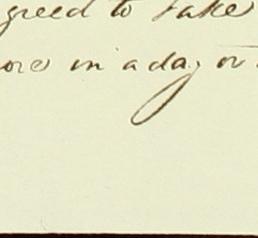 greed to take
ore in a day or